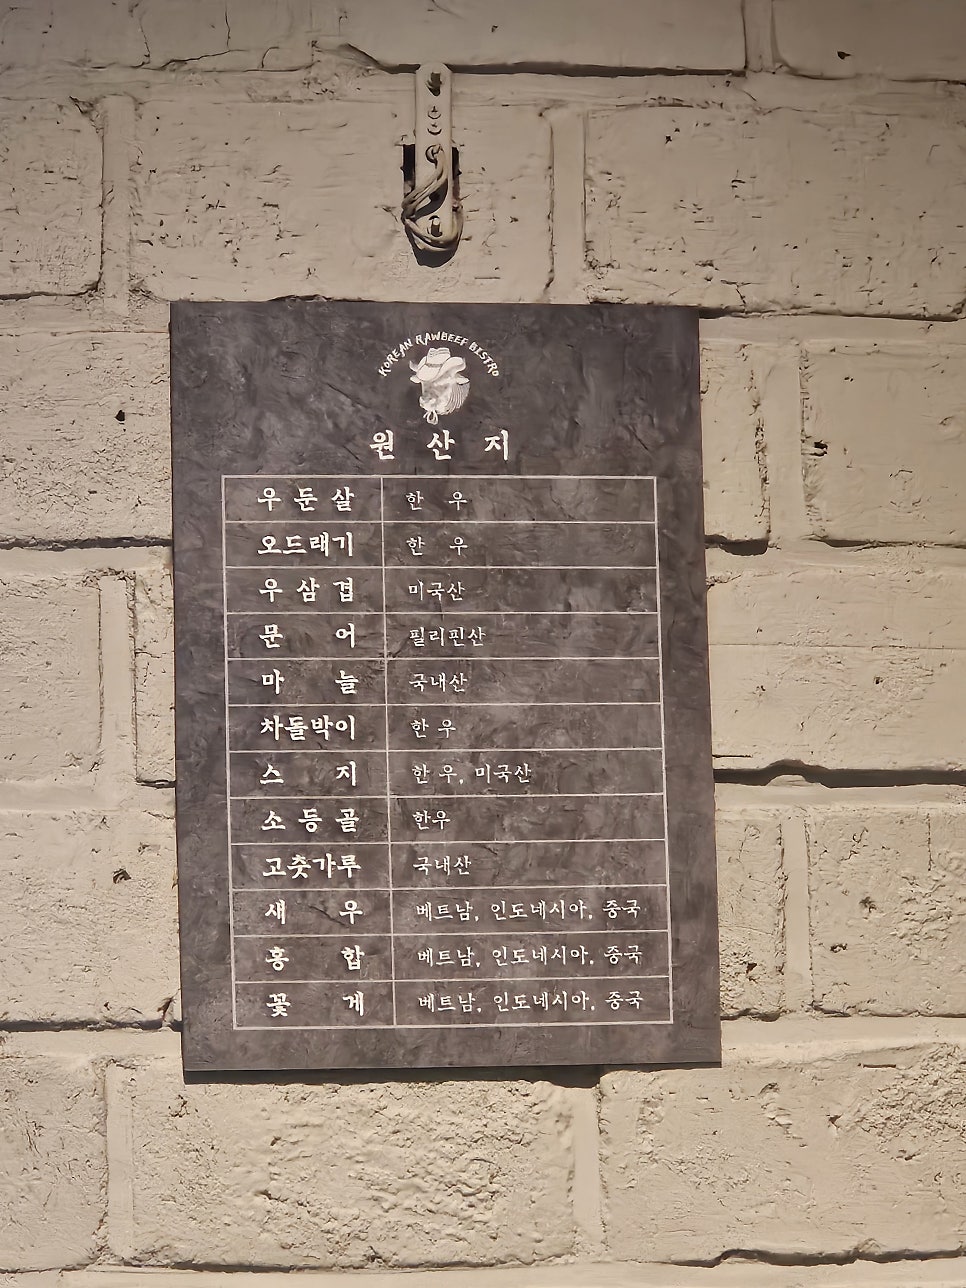 KOREAN RAWBEEF BISTRO
원 산 지
우 둔 살 한 우
오드래기 한 우
우 삼 겹 미국산
문 어 필리핀산
마 늘 국내산
차돌박이 한 우
스 지 한 우, 미국산
소 등 골 한우
고춧가루 국내산
새 우 베트남, 인도네시아, 중국
홍 합 베트남, 인도네시아, 중국
꽃 게 베트남, 인도네시아, 중국